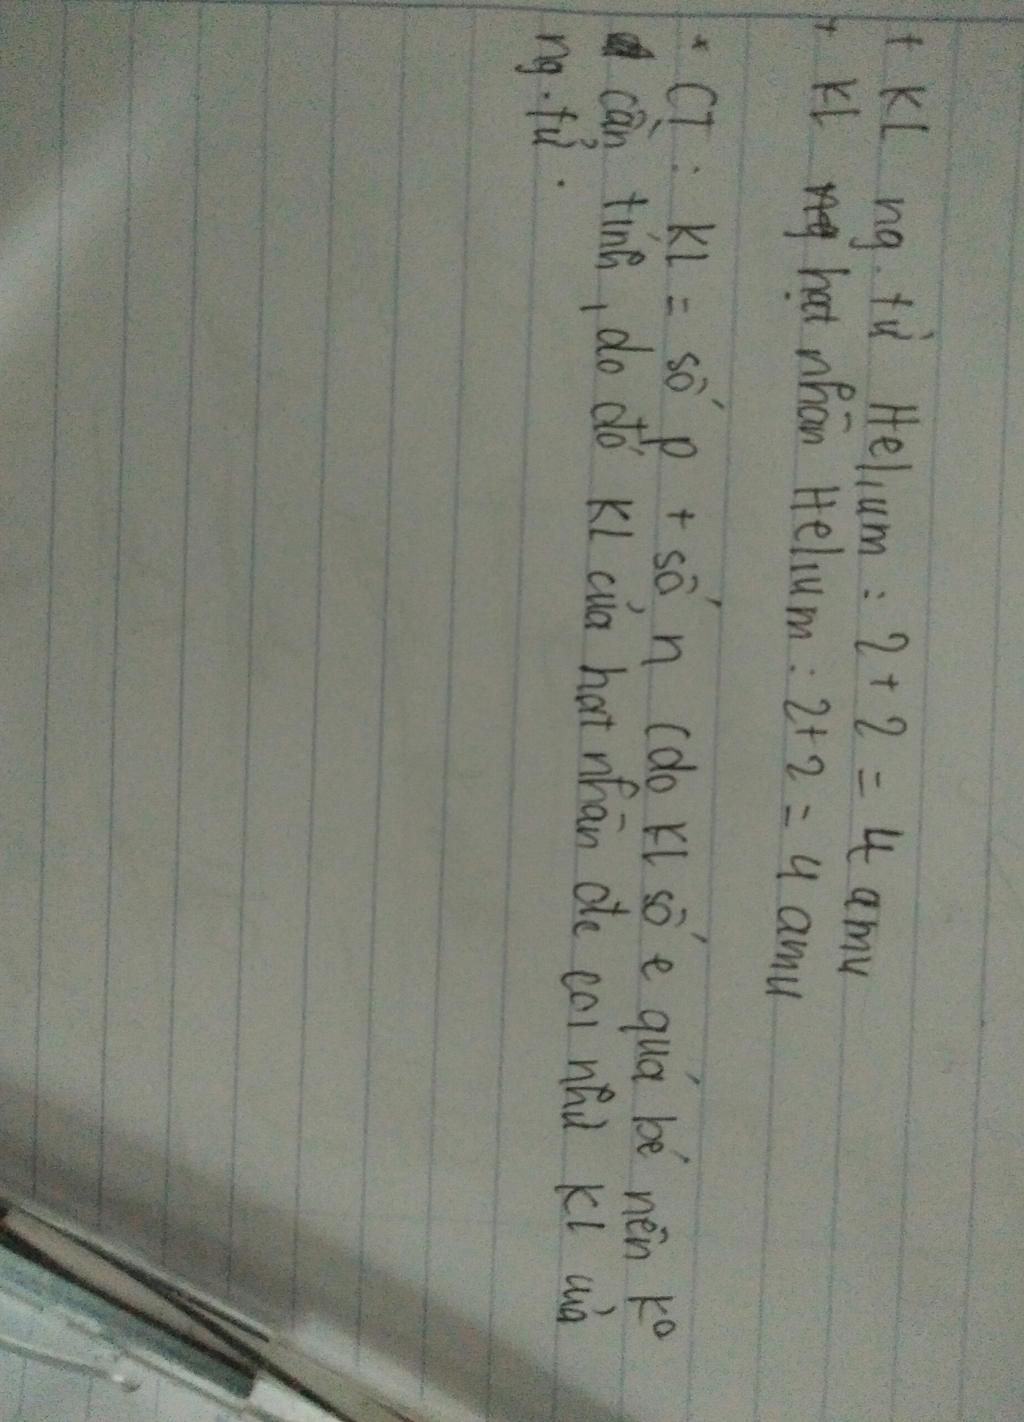 + KL ng.tử Helium : 2 + 2 = 4 amu
+ KL hạt nhân Helium : 2+2 = 4 amu
* CT : KL = số p + số n (do KL số e quá bé nên ko
cần tính, do đó KL của hạt nhân đc coi như KL của
ng.tử.